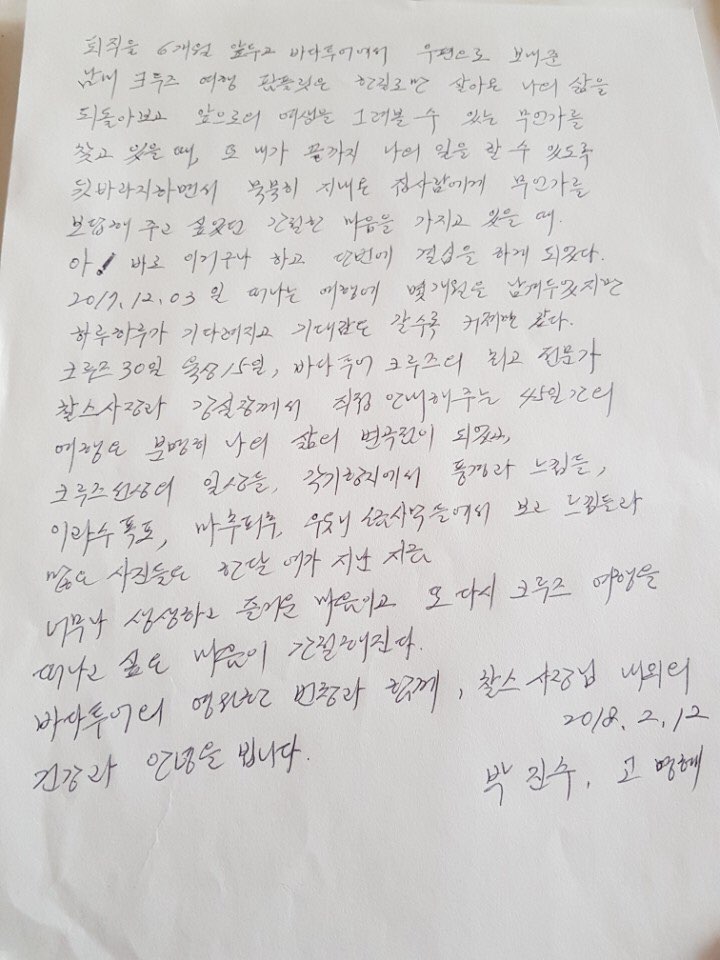 퇴직을 6개월 앞두고 바다투어에서 우편으로 보내준
남미 크루즈 여행 팜플릿은 한길로만 살아온 나의 삶을
되돌아보고 앞으로의 여생을 그려볼 수 있는 무언가를
찾고 있을 때, 또 내가 끝까지 나의 일을 할 수 있도록
뒷바라지하면서 묵묵히 지내온 집사람에게 무언가를
보답해 주고 싶었던 간절한 마음을 가지고 있을 때.
아! 바로 이거구나 하고 단번에 결심을 하게 되었다.
2017.12.03 일 떠나는 여행에 몇개월을 남겨두었지만
하루하루가 기다려지고 기대감도 갈수록 커져만 갔다.
크루즈 30일 육상 15일, 바다투어 크루즈의 최고 전문가
찰스사장과 강실장께서 직접 안내해주는 45일간의
여행은 분명히 나의 삶의 변곡점이 되었고,
크루즈선상의 일상들, 각기항지에서 풍경과 느낌들,
이과수폭포, 마추피추, 우유니 소금사막 등에서 보고 느낌들과
많은 사진들은 한달 여가 지난 지금
너무나 생생하고 즐거운 마음이고 또 다시 크루즈 여행을
떠나고 싶은 마음이 간절해진다.
바다투어의 영원한 번창과 함께, 찰스 사장님 내외의
2018. 2. 12
건강과 안녕을 빕니다.
박진수, 고명혜